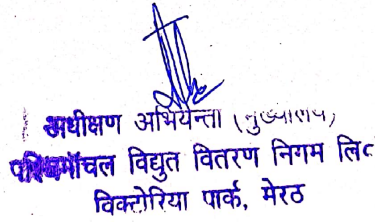 अधीक्षण अभियन्ता (मुख्यालय)
पश्चिमाँचल विद्युत वितरण निगम लि०
विक्टोरिया पार्क, मेरठ